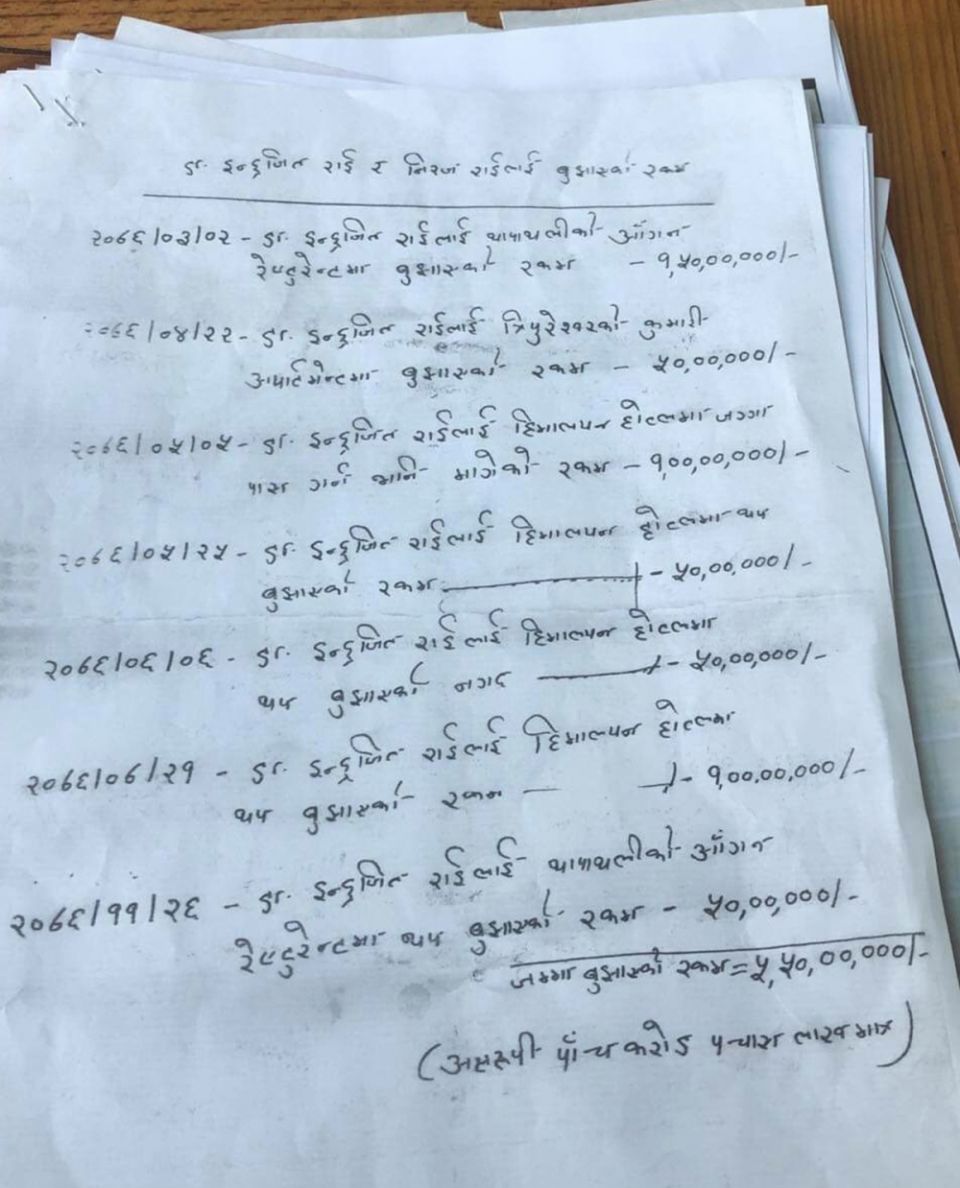 डा. इन्द्रजित राई र निरज राईलाई बुझाएको रकम
२०७६/०३/०२ - डा. इन्द्रजित राईलाई थापाथलीको आँगन
रेष्टुरेन्टमा बुझाएको रकम - १,५०,००,०००/-
२०७६/०४/२२ - डा. इन्द्रजित राईलाई त्रिपुरेश्वरको कुमारी
अपार्टमेन्टमा बुझाएको रकम - ५०,००,०००/-
२०७६/०५/०५ - डा. इन्द्रजित राईलाई हिमालयन होटलमा जग्गा
पास गर्न भनि मागेको रकम - १,००,००,०००/-
२०७६/०५/२५ - डा. इन्द्रजित राईलाई हिमालयन होटलमा थप
बुझाएको रकम - ५०,००,०००/-
२०७६/०६/०६ - डा. इन्द्रजित राईलाई हिमालयन होटलमा
थप बुझाएको नगद - ५०,००,०००/-
२०७६/०७/२१ - डा. इन्द्रजित राईलाई हिमालयन होटलमा
थप बुझाएको रकम - १,००,००,०००/-
२०७६/११/२६ - डा. इन्द्रजित राईलाई थापाथलीको आँगन
रेष्टुरेन्टमा थप बुझाएको रकम - ५०,००,०००/-
जम्मा बुझाएको रकम = ५,५०,००,०००/-
(अक्षरुपी पाँच करोड पचास लाख मात्र)